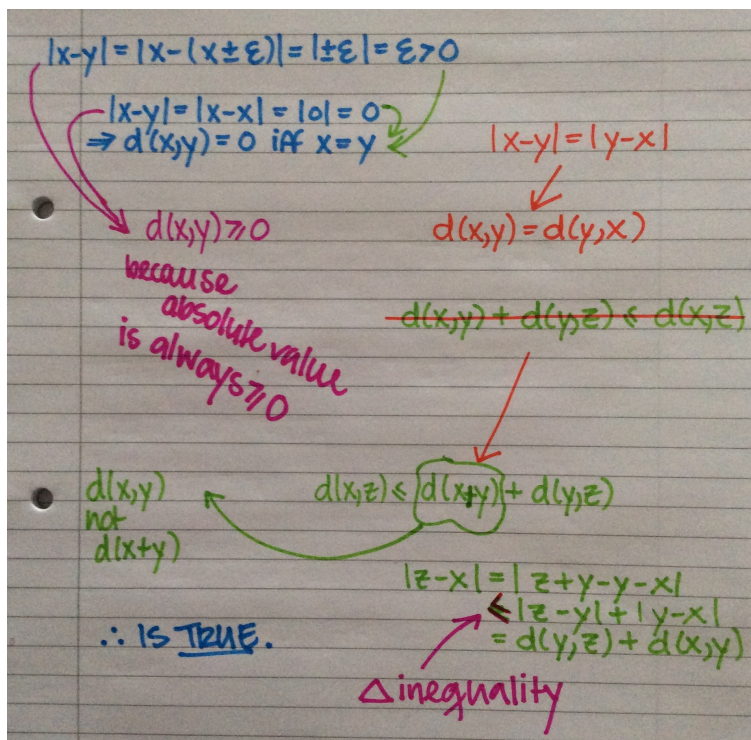 |x-y| = |x-(x±ε)| = |±ε| = ε>0
|x-y| = |x-x| = |0| = 0
⇒ d(x,y) = 0 iff x=y
|x-y| = |y-x|
d(x,y) ⩾ 0
d(x,y) = d(y,x)
because
absolute value
is always ⩾0
d(x,y) + d(y,z) ⩽ d(x,z)
d(x,z) ⩽ d(x+y) + d(y,z)
d(x,y)
not
d(x+y)
|z-x| = |z+y-y-x|
⩽ |z-y| + |y-x|
= d(y,z) + d(x,y)
∴ IS TRUE.
Δ inequality